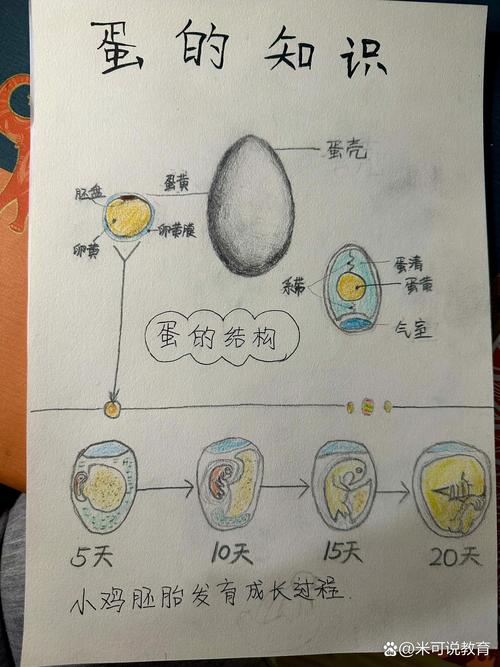 蛋的知识
蛋壳
胚盘
蛋黄
卵黄
卵黄膜
系带
蛋清
蛋黄
气室
蛋的结构
5天
10天
15天
20天
小鸡胚胎发育成长过程.
@米可说教育